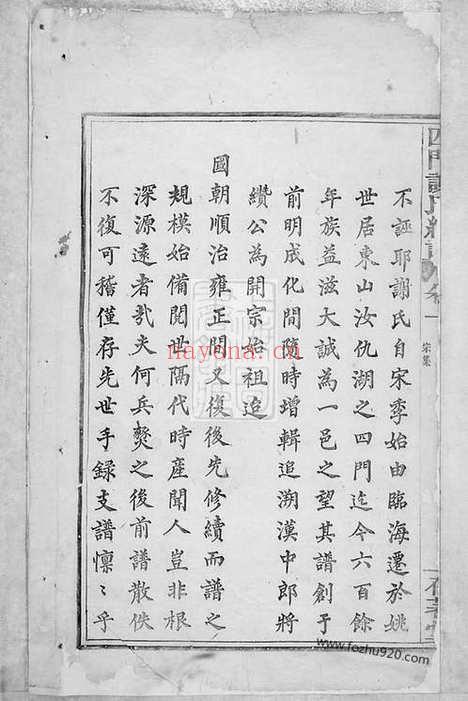 不誣耶謝氏自宋季始由臨海遷於姚
世居東山汝仇湖之四門迄今六百餘
年族益滋大誠為一邑之望其譜創于
前明成化間隨時增輯追溯漢中郎將
纘公為開宗始祖迨
國朝順治雍正間又復後先修續而譜之
規模始備閱世隔代時產聞人豈非根
深源遠者哉夫何兵燹之後前譜散佚
不復可稽僅存先世手錄支譜懍〻乎
卷一
宗集
nayona.cn
www.fozhu920.com